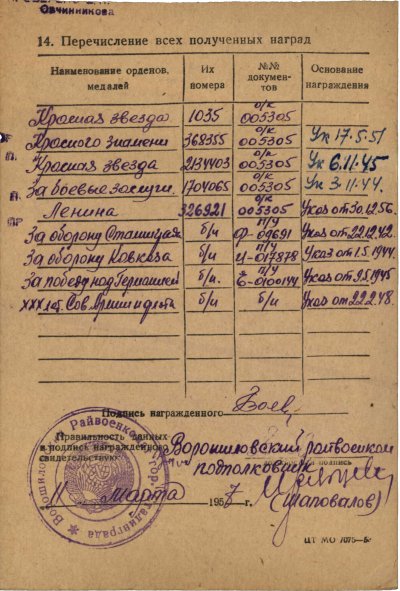 Овчинникова
14. Перечисление всех полученных наград
Наименование орденов, медалей
Их номера
№№ документов
Основание награждения
Красная звезда 1035 о/к 005305
Красного знамени 368355 о/к 005305 Ук 17.5.51
Красная звезда 2134403 о/к 005305 Ук 6.11.45
За боевые заслуги 1704065 о/к 005305 Ук 3.11.44.
Ленина 326921 о/к 005305 Указ от 30.12.56.
За оборону Сталинграда б/н п/у Ф-09691 Указ от 22.12.42.
За оборону Кавказа б/н п/у И-017878 Указ от 1.5.1944.
За победу над Германией б/н. п/у Б-0100144 Указ от 9.5.1945
XXX лет Сов. Армии и флота б/н б/н Указ от 22.2.48.
Подпись награжденного
Правильность данных
и подпись награжденного
свидетельствую:
Ворошиловский райвоенком
подполковник
подпись
(Шаповалов)
11 марта 1957 г.
ЦТ МО 7075—5